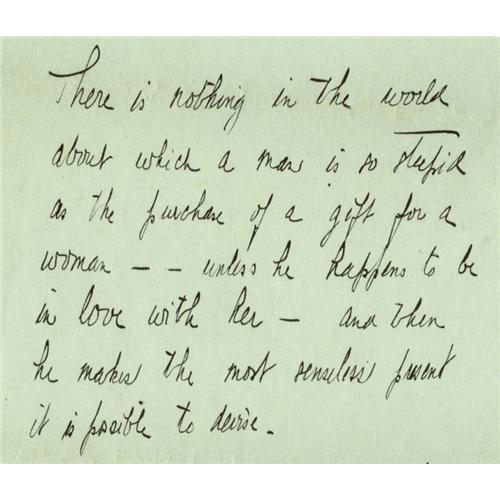 There is nothing in the world
about which a man is so stupid
as the purchase of a gift for a
woman – – unless he happens to be
in love with her – and then
he makes the most senseless present
it is possible to devise.